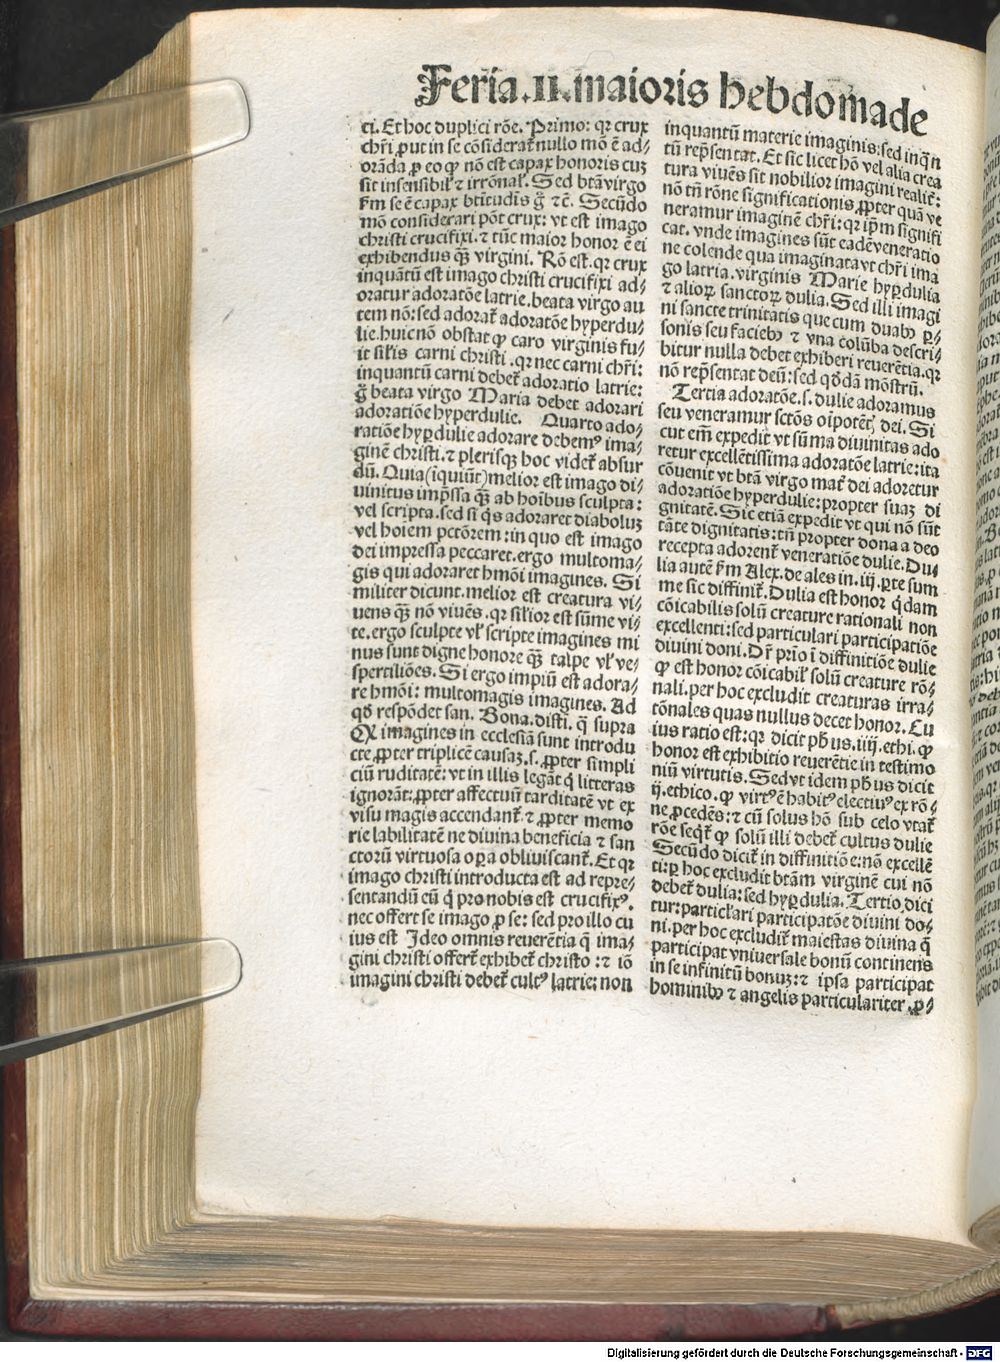 Feria .II. maioris hebdomade
ci. Et hoc duplici rōe. Primo: qꝛ crux
chr̄i ꝓut in se cōsiderat᷑ nullo mō ē ad⸗
orāda ꝓ eo ꝙ nō est capax honoris cuꝫ
sit insensibil᷑ ⁊ irrōnal᷑. Sed btā virgo
ẜm se ē capax btitudis g̊ ⁊c̄. Secūdo
mō considerari pōt crux: vt est imago
christi crucifixi. ⁊ tūc maior honor ē ei
exhibendus ꝙ̄ virgini. Rō est. qꝛ crux
inquantū est imago christi crucifixi ad⸗
oratur adoratōe latrie. beata virgo au
tem nō: sed adorat᷑ adoratōe hyperdu⸗
lie. huic nō obstat ꝙ caro virginis fu⸗
it sil᷑is carni christi. qꝛ nec carni chr̄i:
inquantū carni debet᷑ adoratio latrie:
g̊ beata virgo Maria debet adorari
adoratiōe hyperdulie. Quarto ado⸗
ratiōe hyꝑdulie adorare debemꝰ ima⸗
ginē christi. ⁊ plerisqꝫ hoc videt᷑ absur
dū. Quia (iquiūt) melior est imago di⸗
uinitus imp̄ssa ꝙ̄ ab hoībus sculpta:
vel scripta. sed si q̇s adoraret diaboluꝫ
vel hoiem pctōrem: in quo est imago
dei impressa peccaret. ergo multoma⸗
gis qui adoraret hmōi imagines. Si
militer dicunt. melior est creatura vi⸗
uens ꝙ̄ nō viuēs. qꝛ sil᷑ior est sūme vi⸗
te. ergo sculpte vl᷑ scripte imagines mi
nus sunt digne honore ꝙ̄ talpe vl᷑ ve⸗
spertiliōes. Si ergo impiū est adora⸗
re hmōi: multomagis imagines. Ad
qd̄ respōdet san. Bona. disti. q̄ supra
Qꝙ imagines in ecclesiā sunt introdu
cte ꝓpter triplicē causaꝫ. s. ꝓpter simpli
ciū ruditatē: vt in illis legāt q̄ litteras
ignorāt: ꝓpter affectuū tarditatē vt ex
visu magis accendant᷑. ⁊ ꝓpter memo
rie labilitatē ne diuina beneficia ⁊ san
ctorū virtuosa oꝑa obliuiscant᷑. Et qꝛ
imago christi introducta est ad repre⸗
sentandū eū q̇ pro nobis est crucifixꝰ.
nec offert se imago ꝓ se: sed pro illo cu
ius est Ideo omnis reuerētia q̄ ima⸗
gini christi offert᷑ exhibet᷑ christo: ⁊ iō
imagini christi debet᷑ cultꝰ latrie: non
inquantū materie imaginis: sed inq̄n
tū rep̄sentat. Et sic licet hō vel alia crea
tura viuēs sit nobilior imagini realit᷑:
nō tn̄ rōne significationis ꝓpter quā ve
neramur imaginē chr̄i: qꝛ ip̄m signifi
cat. vnde imagines sūt eadē veneratio
ne colende qua imaginata vt chr̄i ima
go latria. virginis Marie hyꝑdulia
⁊ alioꝝ sanctoꝝ dulia. Sed illi imagi
ni sancte trinitatis que cum duabꝰ ꝑ⸗
sonis seu faciebꝰ ⁊ vna colūba descri⸗
bitur nulla debet exhiberi reuerētia. qꝛ
nō rep̄sentat deū: sed qd̄dā mōstrū.
Tertia adoratōe. s. dulie adoramus
seu veneramur sctōs oīpotēt᷑ dei. Si
cut em̄ expedit vt sūma diuinitas ado
retur excellētissima adoratōe latrie: ita
cōuenit vt btā virgo mat᷑ dei adoretur
adoratiōe hyperdulie: propter suaꝫ di
gnitatē. Sic etiā expedit vt qui nō sūt
tāte dignitatis: tn̄ propter dona a deo
recepta adorent᷑ veneratiōe dulie. Du⸗
lia autē ẜm Alex. de ales in. iij. ꝑte sum
me sic diffinit᷑. Dulia est honor q̇dam
cōicabilis solū creature rationali non
excellenti: sed particulari participatiōe
diuini doni. Dr̄ prīo ī diffinitiōe dulie
ꝙ est honor cōicabil᷑ solū creature rō⸗
nali. per hoc excludit creaturas irra⸗
tōnales quas nullus decet honor. Cu
ius ratio est: qꝛ dicit ph̄us. iiij. ethi. ꝙ
honor est exhibitio reuerētie in testimo
niū virtutis. Sed vt idem ph̄us dicit
ij. ethico. ꝙ virtꝰ ē habitꝰ electiuꝰ ex rō⸗
ne ꝓcedēs: ⁊ cū solus hō sub celo vtat᷑
rōe seqt᷑ ꝙ solū illi debet᷑ cultus dulie
Secūdo dicit᷑ in diffinitiōe: nō excellē
ti: ꝑ hoc excludit btām virginē cui nō
debet᷑ dulia: sed hyꝑdulia. Tertio dici
tur: particl᷑ari participatōe diuini do⸗
ni. per hoc excludit᷑ maiestas diuina q̄
participat vniuersale bonū continens
in se infinitū bonuꝫ: ⁊ ipsa participat
hominibꝰ ⁊ angelis particulariter. ꝓ⸗
Digitalisierung gefördert durch die Deutsche Forschungsgemeinschaft - DFG